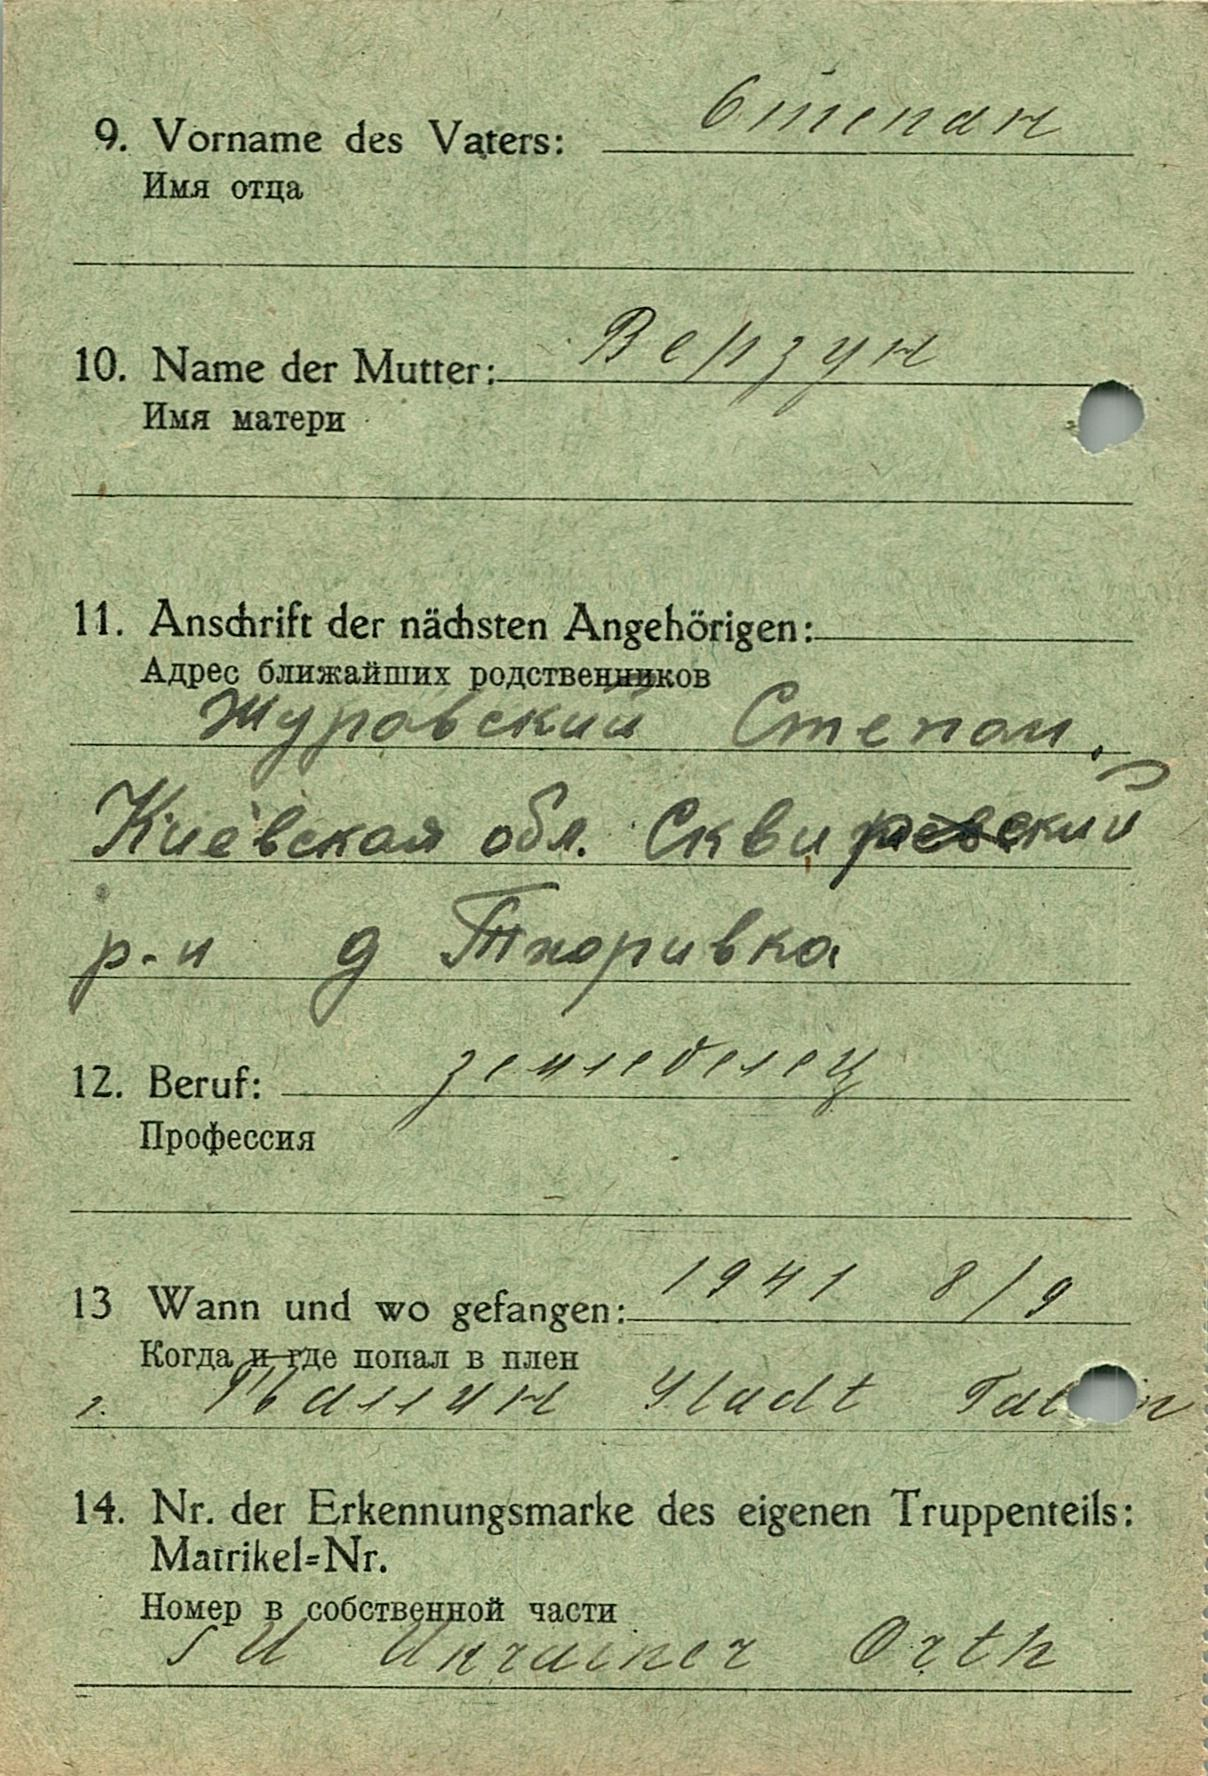 9. Vorname des Vaters: Степан
Имя отца
10. Name der Mutter: Верзун
Имя матери
11. Anschrift der nächsten Angehörigen:
Адрес ближайших родственников
Журовский Степан.
Киевская обл. Сквирский
р-н д Тхоривка
12. Beruf: земледелец
Профессия
13 Wann und wo gefangen: 1941 8/9
Когда и где попал в плен
г. Таллин Stadt
14. Nr. der Erkennungsmarke des eigenen Truppenteils:
Matrikel=Nr.
Номер в собственной части
SU Ukrainer Orth